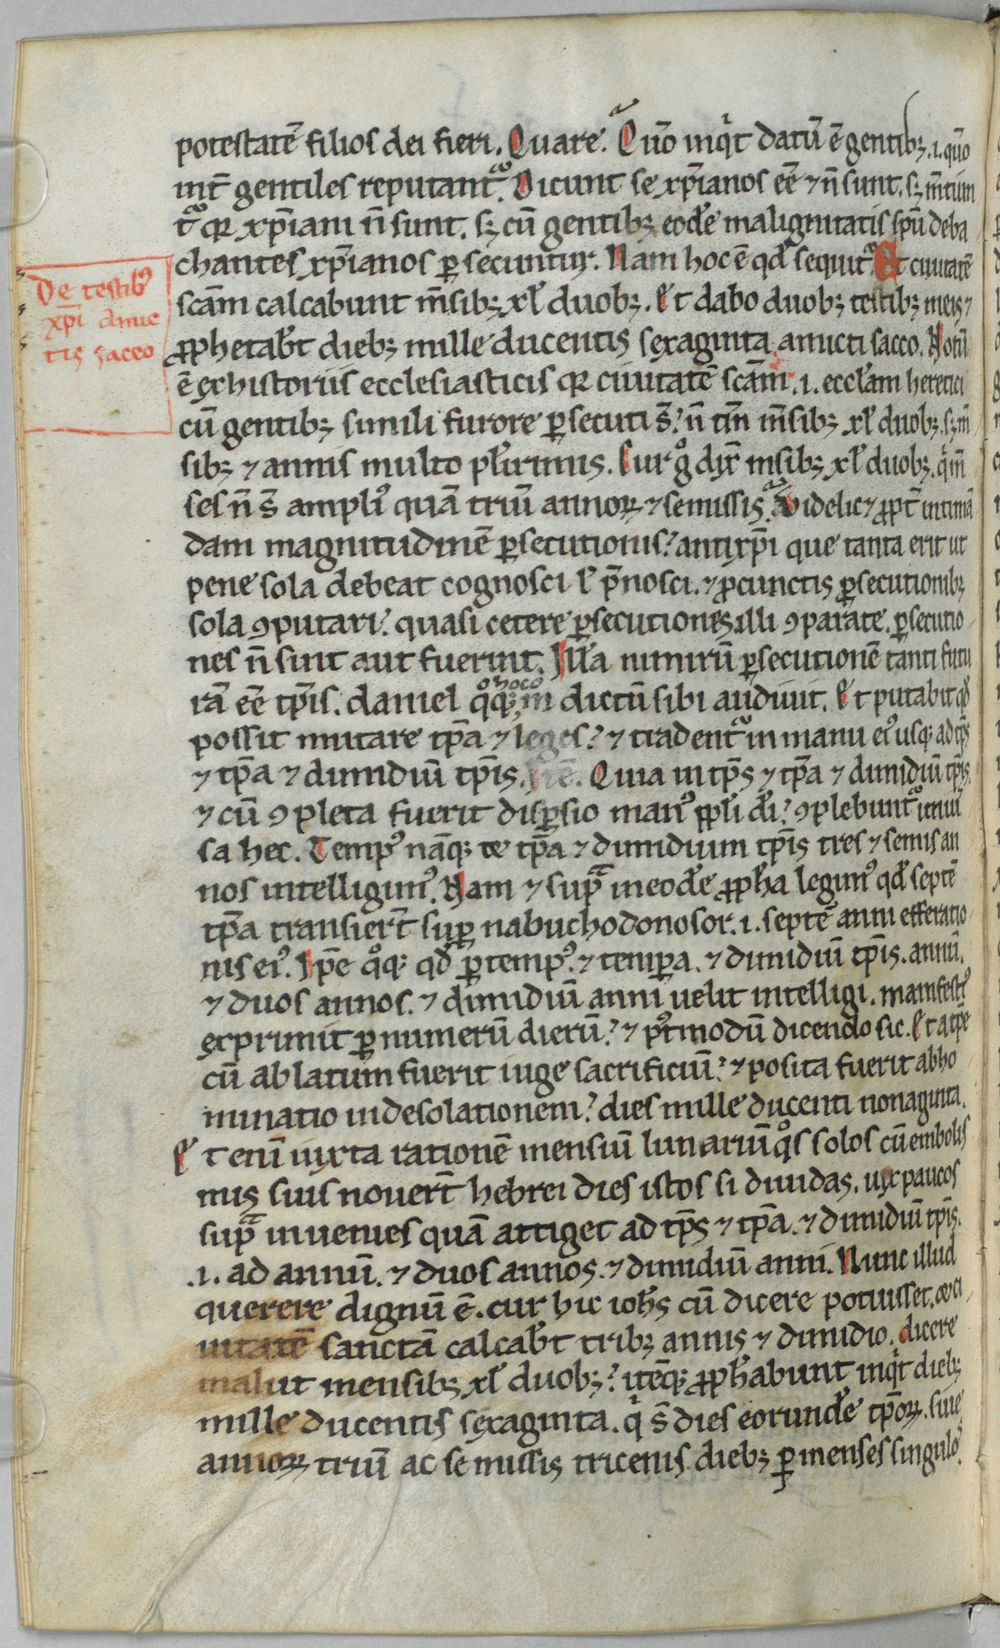 potestatē filios dei fieri. Quare. Quō inqͥt datū ē gentibꝫ .i. quō
int̄ gentiles reputantᷣ. Dicunt se xp̄ianos eē ⁊ n̄ sunt. sꝫ m̄tiun
tᷣ qꝛ xp̄iani n̄ sunt. sꝫ cū gentibꝫ eodē malignitatis sp̄u deba
chantes xp̄ianos ꝑsecuntur. Nam hoc ē qd̄ sequitᷣ. Et ciuitatē
De testibꝰ
xp̄i amic
tis sacco
sc̄am calcabunt m̄sibꝫ xl̄ duobꝫ. Et dabo duobꝫ testibꝫ meis ⁊
ꝓphetab̄t diebꝫ mille ducentis sexaginta amicti sacco. Notū
ē ex historiis ecclesiasticis qꝛ ciuitatē sc̄am .i. eccl̄am heretici
cū gentibꝫ simili furore ꝑsecuti s̄? n̄ tm̄ m̄sibꝫ xl̄ duobꝫ. sꝫ m̄
sibꝫ ⁊ annis multo pl̄rimis. Cur gͦ dix̄ m̄sibꝫ xl̄ duobꝫ. qͥ m̄
ses n̄ s̄ ampliꝰ quā triū annoꝝ ⁊ semissis. Videlic⁊ ꝓpt̄ intimā
dam magnitudinē ꝑsecutionis? antixp̄i que tanta erit ut
pene sola debeat cognosci l̄ p̄nosci. ⁊ p̄ cunctis ꝑsecutionibꝫ
sola ꝯputari. quasi cetere ꝑsecutiones illi ꝯparate. ꝑsecutio
nes n̄ sint aut fuerint. Illa nimirū ꝑsecutionē tanti futu
rā eē tp̄is. daniel qͦqꝫ hoc mͦ dictū sibi audiuit. Et putabit qd̄
possit mutare tp̄a ⁊ leges? ⁊ tradentᷣ in manu eiꝰ usqꝫ ad tp̄s
⁊ tp̄a ⁊ dimidiū tp̄is. Quia in tp̄s ⁊ tp̄a ⁊ dimidiū tp̄is.
⁊ cū ꝯpleta fuerit disꝑsio manꝰ ppl̄i dī? ꝯplebuntᷣ uniuͥ
sa hec. Tempꝰ nāqꝫ te tp̄a ⁊ dimidium tp̄is tres ⁊ semis an
nos intelligimꝰ. Nam ⁊ supᷓ in eodē ꝓph̄a legimꝰ qd̄ septē
tp̄a transier̄t suꝑ nabuchodonosor .i. septē anni efferatio
nis eiꝰ. Ip̄e qͦqꝫ qd̄ ꝑ tempꝰ. ⁊ tempera. ⁊ dimidiū tp̄is. annū.
⁊ duos annos. ⁊ dimidiū anni uelit intelligi. manifestꝰ
exprimit ꝑ numerū dierū? ⁊ post modū dicendo sic. Et a tp̄e
cū ablatum fuerit iuge sacrificiū? ⁊ posita fuerit abho
minatio in desolationem? dies mille ducenti nonaginta.
Et enī iuxta rationē mensiū lunariū qͦs solos cū embolis
mis suis nouer̄t hebrei dies istos si diuidas. uix paucos
supᷓ inuenies quā attiget ad tp̄s ⁊ tp̄a. ⁊ dimidiū tp̄is.
.i. ad annū. ⁊ duos annos. ⁊ dimidiū anni. Nunc illud
querere dignū ē. cur hic ioh̄s cū dicere potuisset. ꝙ ci
uitatē sanctā calcab̄t tribꝫ annis ⁊ dimidio. dicere
maluit mensibꝫ xl̄ duobꝫ? itēqꝫ ꝓph̄abunt inqͥt diebꝫ
mille ducentis sexaginta. qͥ s̄ dies eorundē tp̄oꝝ. siue
annoꝝ triū ac semissis tricenis diebꝫ ꝑ menses singuloꝰ